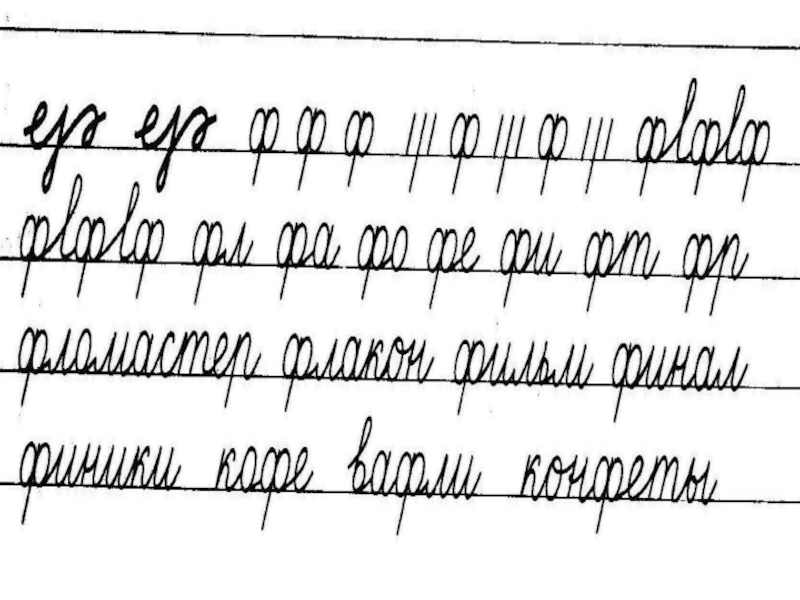 ф ф ф ||| ф ||| ф ||| фlфlф
фlфlф фл фа фо фе фи фт фр
фломастер флакон фильм финал
финики кофе вафли конфеты